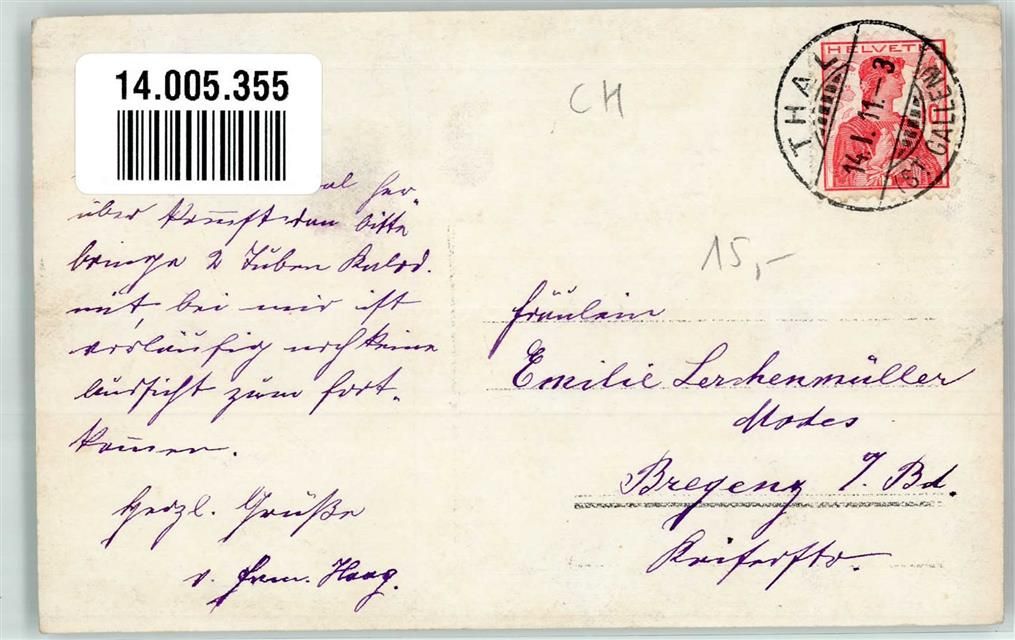 14.005.355
CH
HELVETIA
THAL
14.I.11.-3
(ST. GALLEN)
15,-
her
über kommst dan bitte
bringe 2 Tuben Kalod.
mit, bei mir ist
vorläufig noch keine
Aussicht zum fort-
kommen.
Herzl. Grüße
v. Herm. Haag.
Fräulein
Emilie Lerchenmüller
Modes
Bregenz a/ Bd.
Kaiserstr.